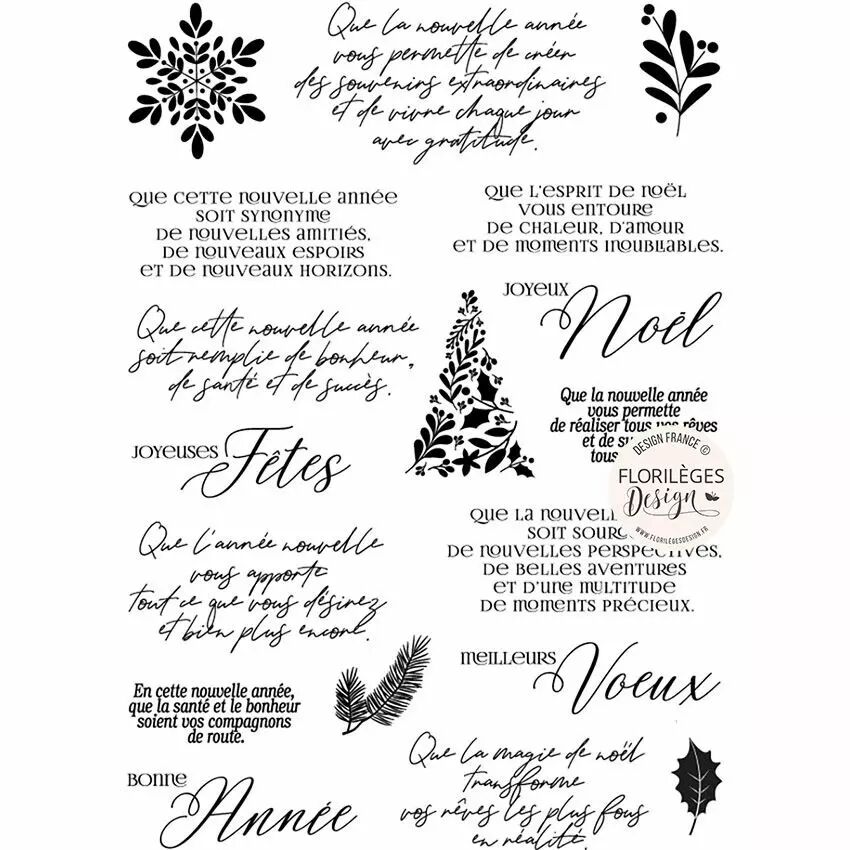 Que la nouvelle année
vous permette de créer
des souvenirs extraordinaires
et de vivre chaque jour
avec gratitude.
QUE CETTE NOUVELLE ANNÉE
SOIT SYNONYME
DE NOUVELLES AMITIÉS,
DE NOUVEAUX ESPOIRS
ET DE NOUVEAUX HORIZONS.
QUE L'ESPRIT DE NOËL
VOUS ENTOURE
DE CHALEUR, D'AMOUR
ET DE MOMENTS INOUBLIABLES.
JOYEUX
Noël
Que cette nouvelle année
soit remplie de bonheur,
de santé et de succès.
Que la nouvelle année
vous permette
de réaliser tous vos rêves
et de
tous
JOYEUSES
Fêtes
DESIGN FRANCE ©
FLORILÈGES
Design
WWW.FLORILEGESDESIGN.FR
QUE LA
SOIT
DE NOUVELLES PERSPECTIVES,
DE BELLES AVENTURES
ET D'UNE MULTITUDE
DE MOMENTS PRÉCIEUX.
Que l'année nouvelle
vous apporte
tout ce que vous désirez
et bien plus encore.
MEILLEURS
Voeux
En cette nouvelle année,
que la santé et le bonheur
soient vos compagnons
de route.
Que la magie de noël
transforme
vos rêves les plus fous
en réalité.
BONNE
Année